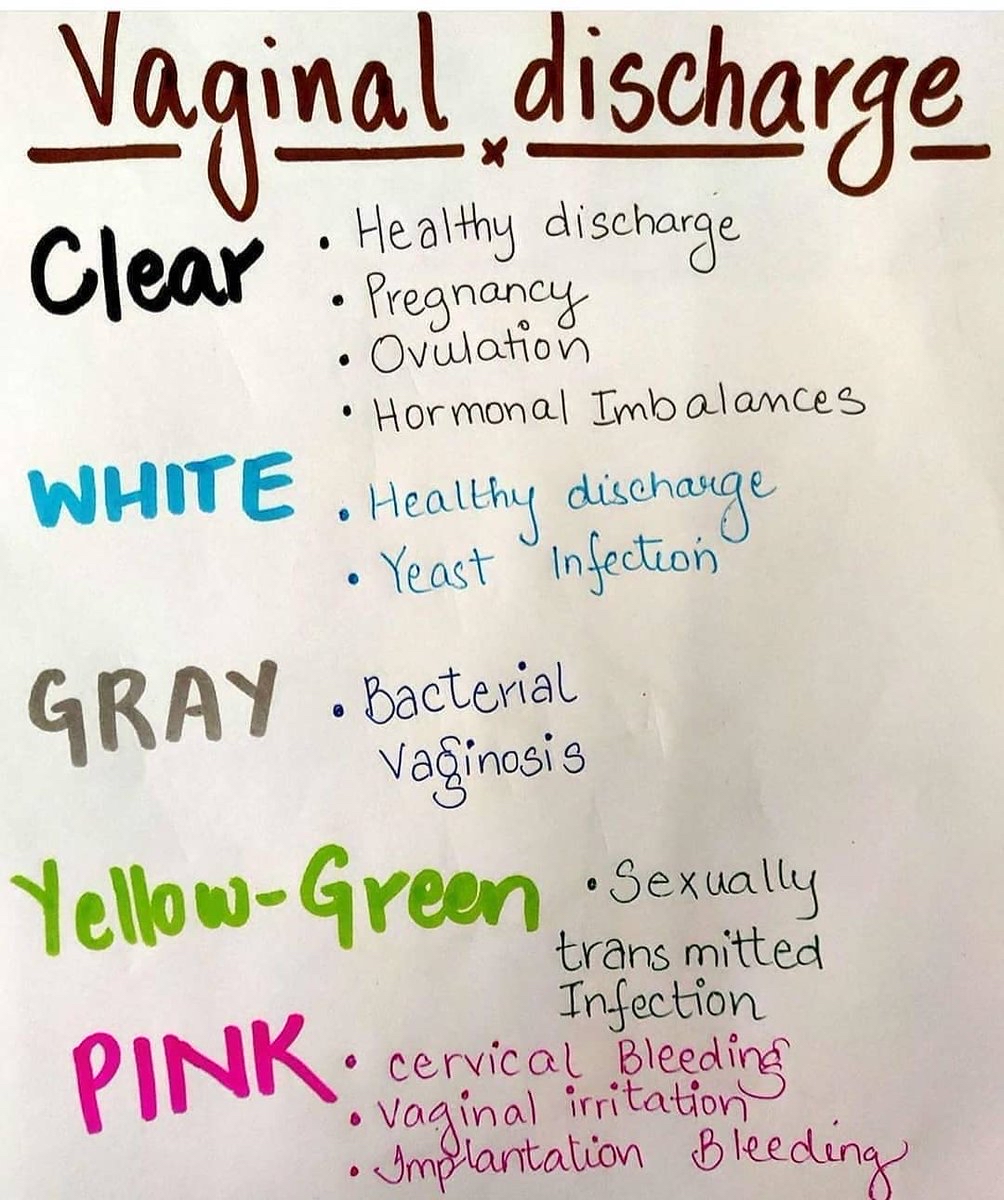 Vaginal discharge
x
Clear
• Healthy discharge
• Pregnancy
• Ovulation
• Hormonal Imbalances
WHITE
• Healthy discharge
• Yeast Infection
GRAY
• Bacterial
Vaginosis
Yellow-Green
• Sexually
trans mitted
Infection
PINK
• cervical Bleeding
• Vaginal irritation
• Implantation Bleeding